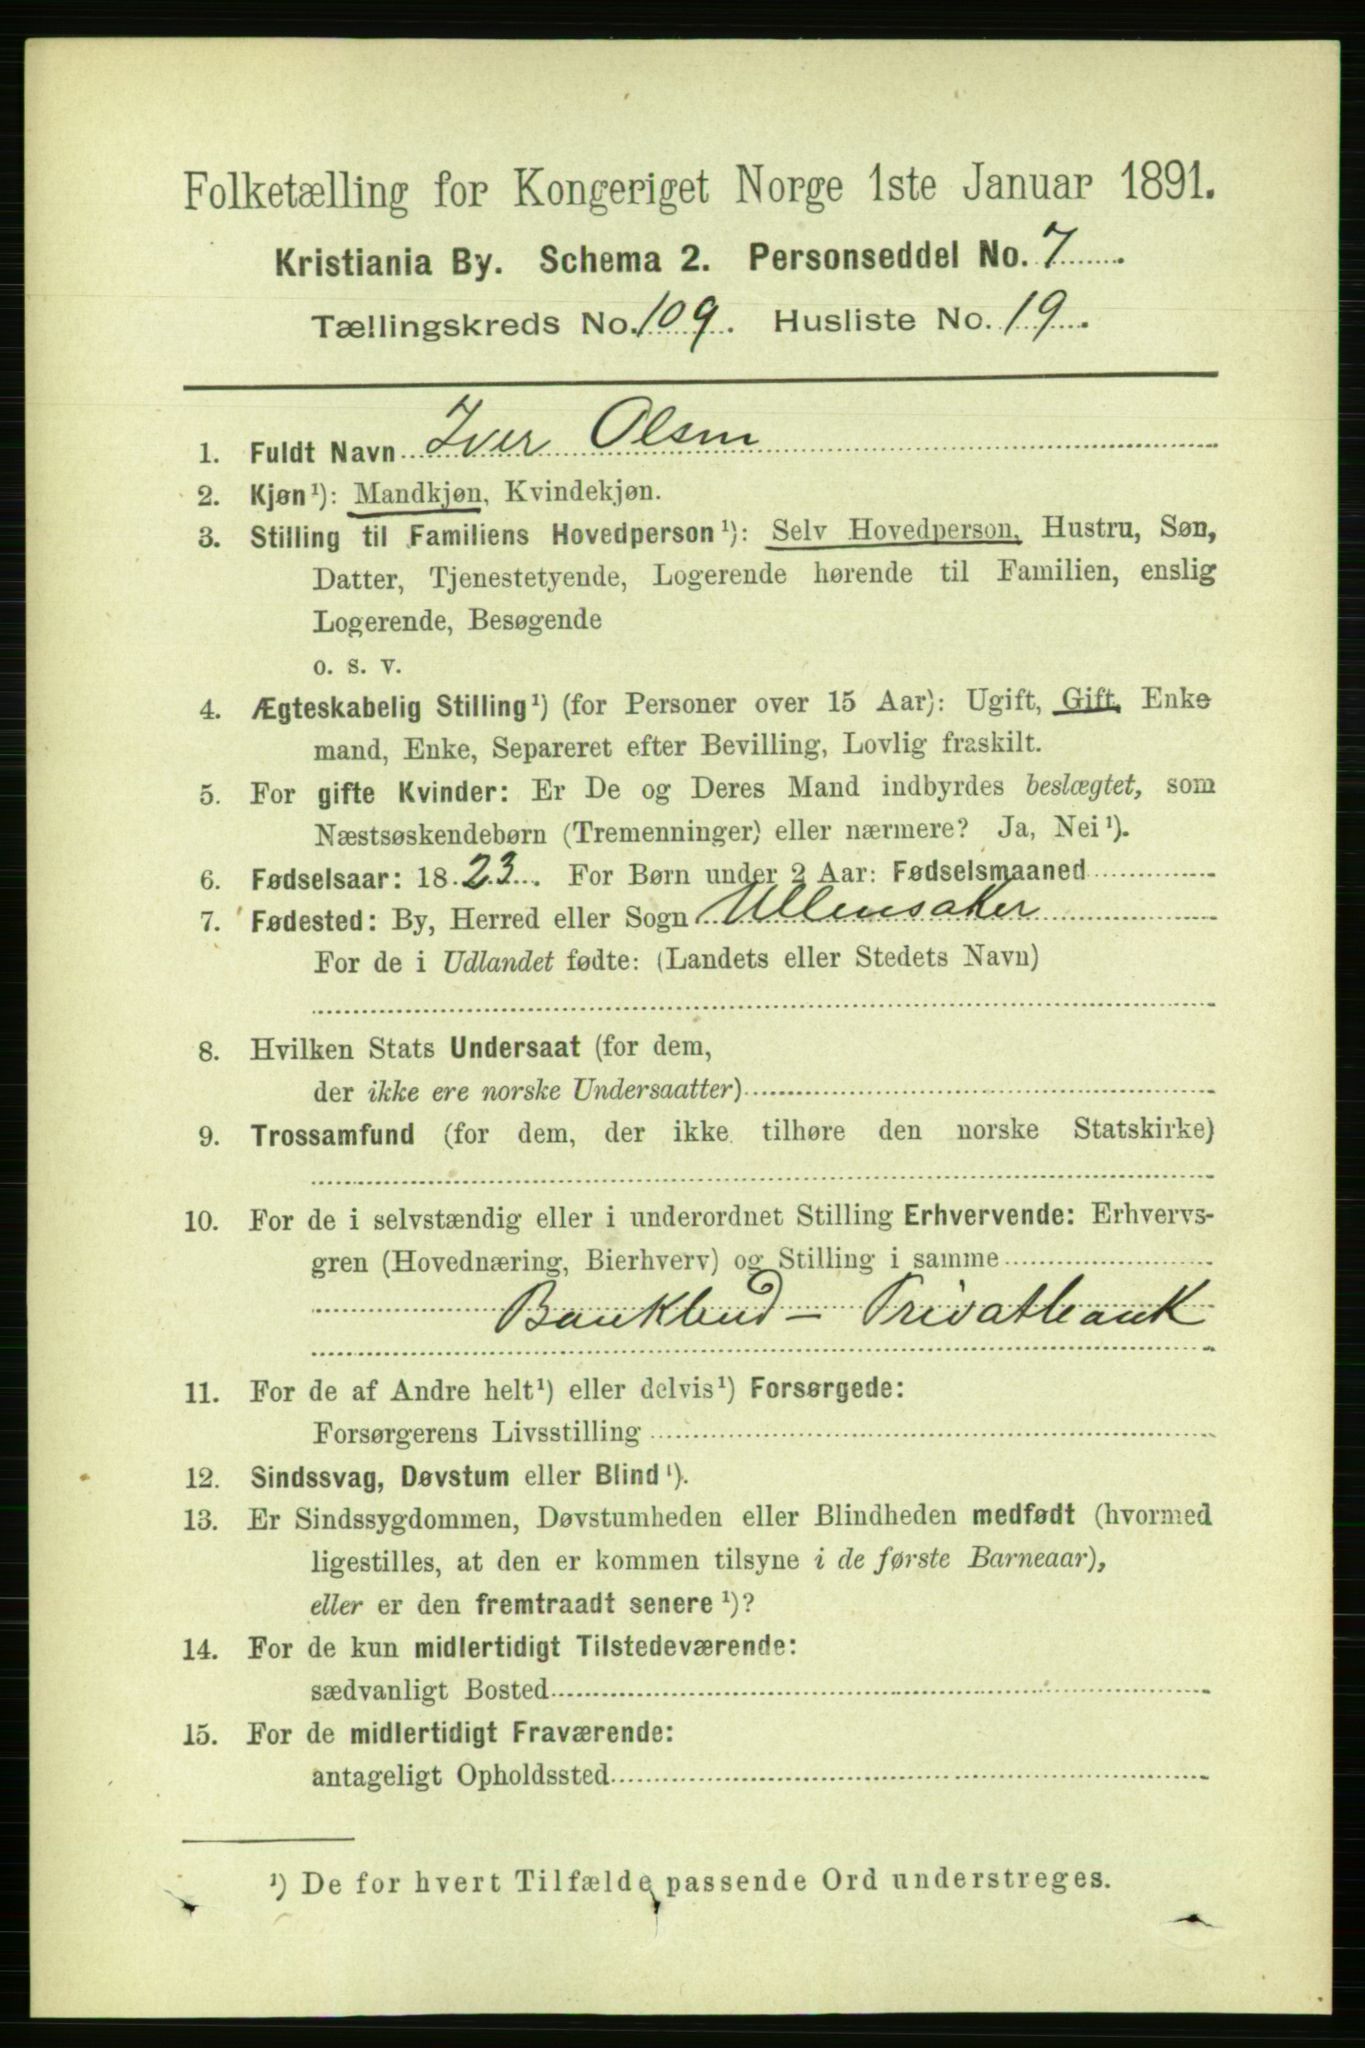 Folketælling for Kongeriget Norge 1ste Januar 1891.
Kristiania By. Schema 2. Personseddel No. 7
Tællingskreds No. 109. Husliste No. 19.
1. Fuldt Navn Iver Olsen
2. Kjøn¹): Mandkjøn, Kvindekjøn.
3. Stilling til Familiens Hovedperson¹): Selv Hovedperson, Hustru, Søn,
Datter, Tjenestetyende, Logerende hørende til Familien, enslig
Logerende, Besøgende
o. s. v.
4. Ægteskabelig Stilling¹) (for Personer over 15 Aar): Ugift, Gift, Enke
mand, Enke, Separeret efter Bevilling, Lovlig fraskilt.
5. For gifte Kvinder: Er De og Deres Mand indbyrdes beslægtet, som
Næstsøskendebørn (Tremenninger) eller nærmere? Ja, Nei¹).
6. Fødselsaar: 1823. For Børn under 2 Aar: Fødselsmaaned
7. Fødested: By, Herred eller Sogn Ullensaker
For de i Udlandet fødte: (Landets eller Stedets Navn)
8. Hvilken Stats Undersaat (for dem,
der ikke ere norske Undersaatter)
9. Trossamfund (for dem, der ikke tilhøre den norske Statskirke)
10. For de i selvstændig eller i underordnet Stilling Erhvervende: Erhvervs-
gren (Hovednæring, Bierhverv) og Stilling i samme
Bankbud - Privatbank
11. For de af Andre helt¹) eller delvis¹) Forsørgede:
Forsørgerens Livsstilling
12. Sindssvag, Døvstum eller Blind¹).
13. Er Sindssygdommen, Døvstumheden eller Blindheden medfødt (hvormed
ligestilles, at den er kommen tilsyne i de første Barneaar),
eller er den fremtraadt senere¹)?
14. For de kun midlertidigt Tilstedeværende:
sædvanligt Bosted
15. For de midlertidigt Fraværende:
antageligt Opholdssted
¹) De for hvert Tilfælde passende Ord understreges.